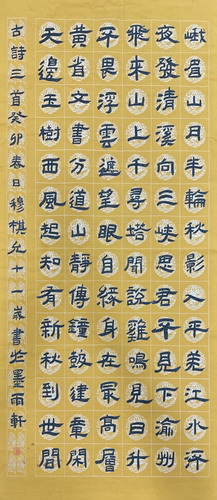 峨眉山月半輪秋影入平羌江水流
夜發清溪向三峽思君不見下渝州
飛來山上千尋塔聞說雞鳴見日升
不畏浮雲遮望眼自緣身在最高層
黃省文書分道山靜傳鐘鼓建章閑
天邊玉樹西風起知有新秋到世間
古詩三首癸卯春日穆棋允十一歲書於墨雨軒